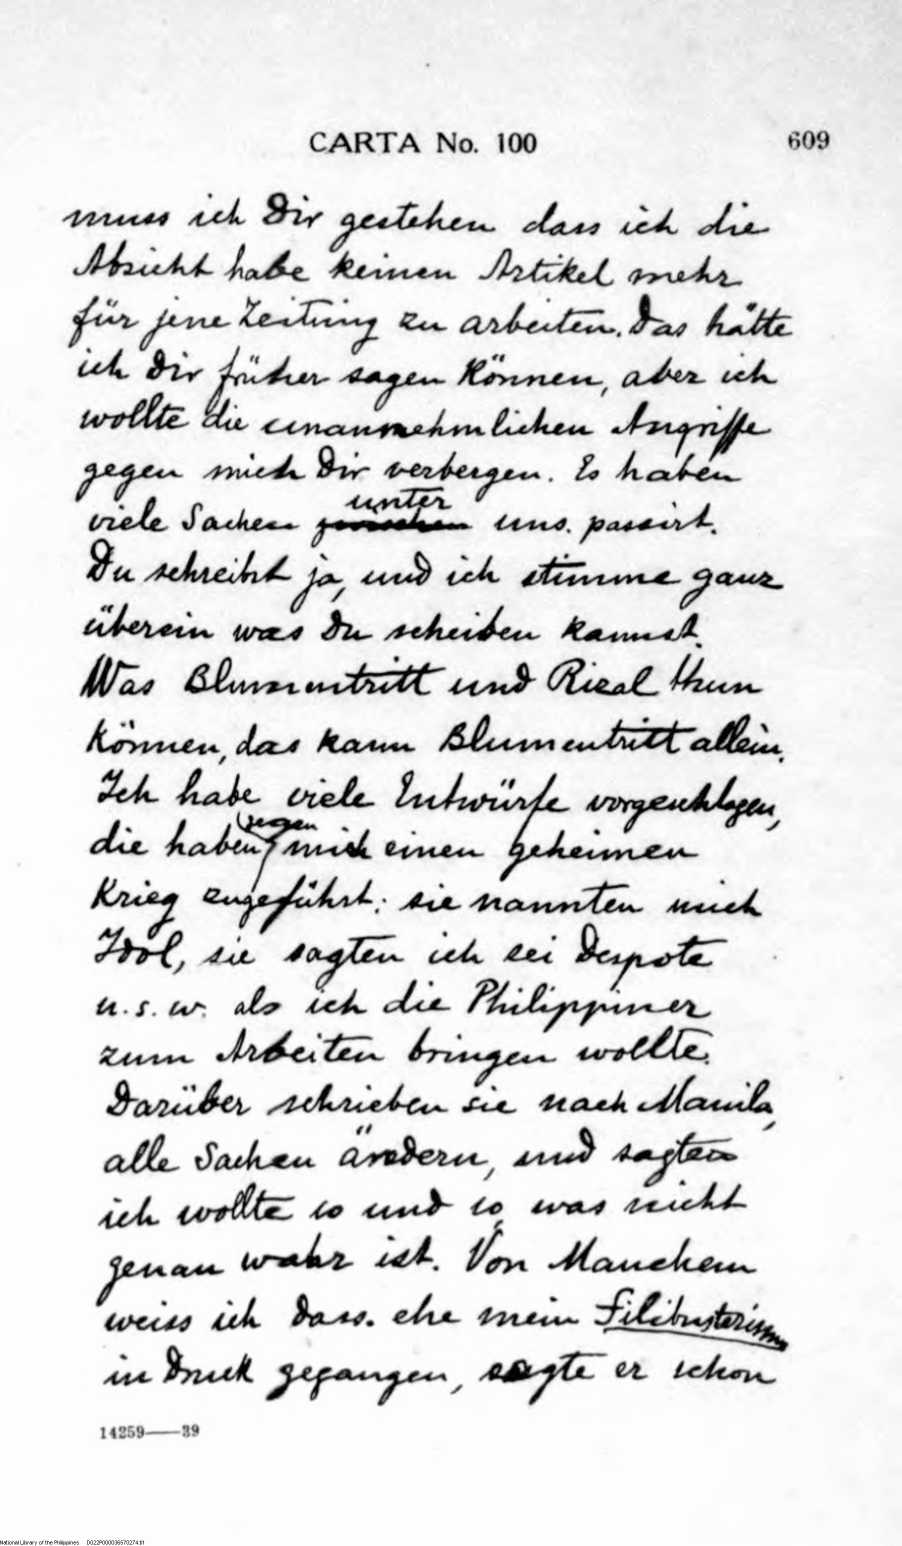 CARTA No. 100 609
muss ich Dir gestehen dass ich die
Absicht habe keinen Artikel mehr
für jene Zeitung zu arbeiten. Das hätte
ich Dir früher sagen können, aber ich
wollte die unannehmlichen Angriffe
gegen mich Dir verbergen. Es haben
unter
viele Sachen zwischen uns. passirt.
Du schreibst ja, und ich stimme ganz
überein was Du scheiben kannst.
Was Blumentritt und Rizal thun
können, das kann Blumentritt allein.
Ich habe viele Entwürfe vorgeschlagen,
gegen
die haben mich einen geheimen
Krieg zugeführt: sie nannten mich
Idol, sie sagten ich sei Despote
u. s. w. als ich die Philippiner
zum Arbeiten bringen wollte.
Darüber schrieben sie nach Manila,
alle Sachen ändern, und sagten
ich wollte so und so, was nicht
genau wahr ist. Von Manchem
weiss ich dass. ehe mein Filibusterismo
in Druck gegangen, sagte er schon
14259——39
National Library of the Philippines D022P000036570274.tif